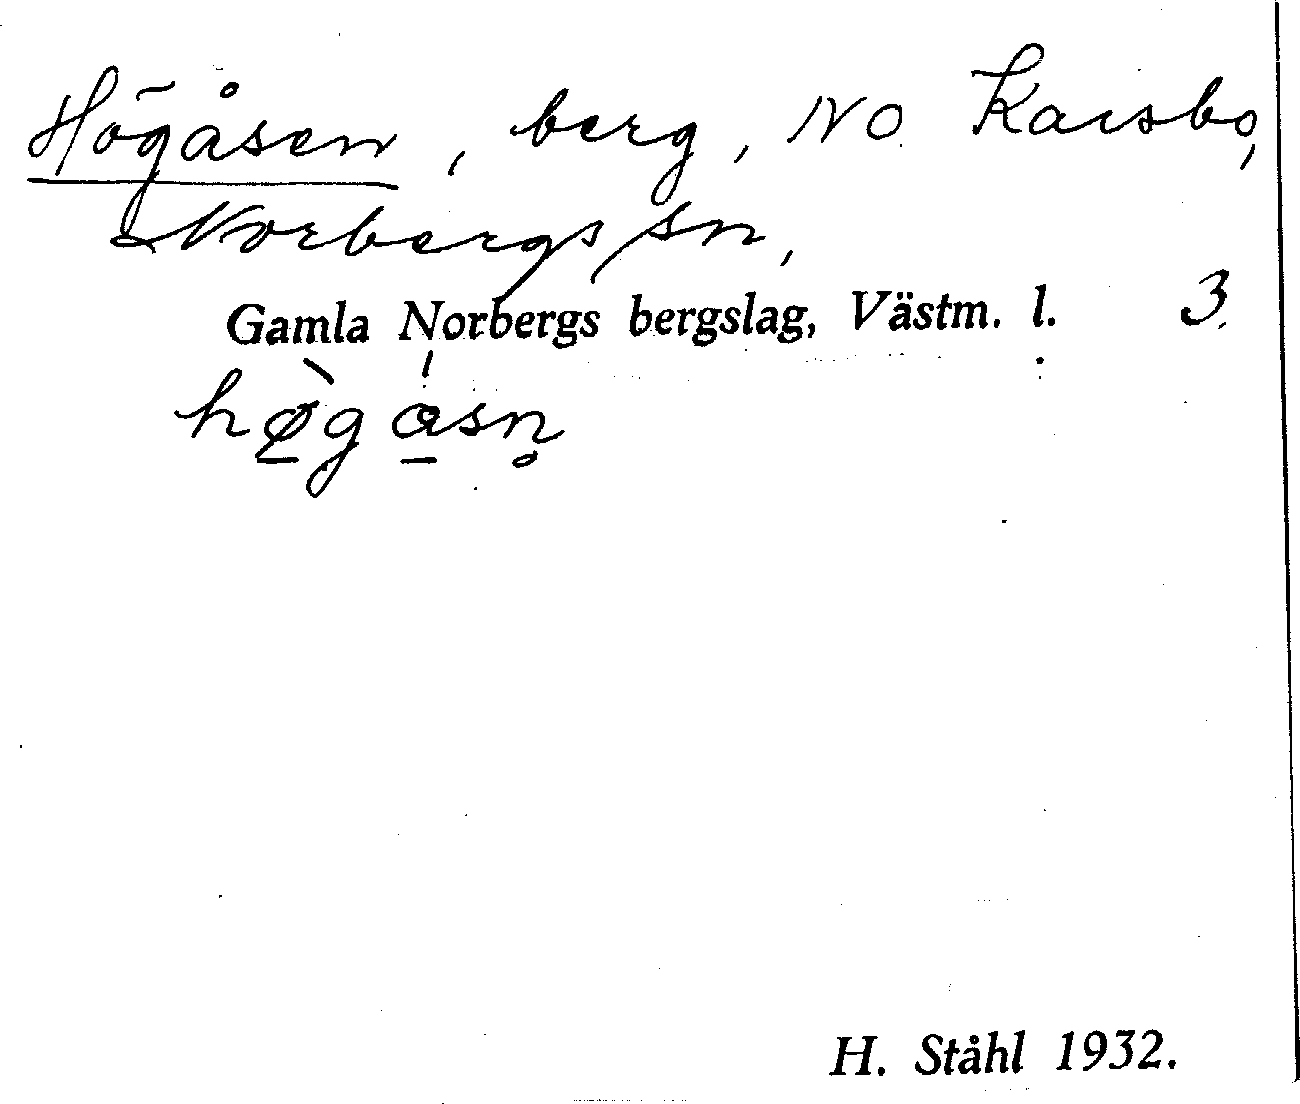 Högåsen, berg, NO Karsbo,
Norbergs sn,
Gamla Norbergs bergslag, Västm. l. 3.
hø̠̀gå̠sn̥
H. Ståhl 1932.